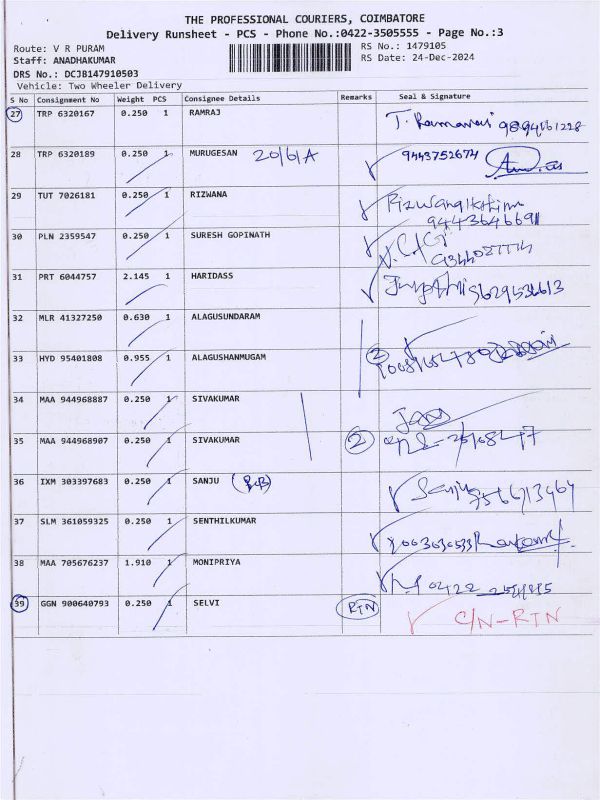 THE PROFESSIONAL COURIERS, COIMBATORE
Delivery Runsheet - PCS - Phone No.:0422-3505555 - Page No.:3
Route: V R PURAM RS No.: 1479105
Staff: ANADHAKUMAR RS Date: 24-Dec-2024
DRS No.: DCJB147910503
Vehicle: Two Wheeler Delivery
S No Consignment No Weight PCS Consignee Details Remarks Seal & Signature
27 TRP 6320167 0.250 1 RAMRAJ
28 TRP 6320189 0.250 1 MURUGESAN 20/6/A 9443752674
29 TUT 7026181 0.250 1 RIZWANA
9443646691
30 PLN 2359547 0.250 1 SURESH GOPINATH
31 PRT 6044757 2.145 1 HARIDASS 5629536613
32 MLR 41327250 0.630 1 ALAGUSUNDARAM
33 HYD 95401808 0.955 1 ALAGUSHANMUGAM 2
34 MAA 944968887 0.250 1 SIVAKUMAR
35 MAA 944968907 0.250 1 SIVAKUMAR 2
36 IXM 303397683 0.250 1 SANJU Sanju
37 SLM 361059325 0.250 1 SENTHILKUMAR
38 MAA 705676237 1.910 1 MONIPRIYA
39 GGN 900640793 0.250 1 SELVI RTN C/N-RTN